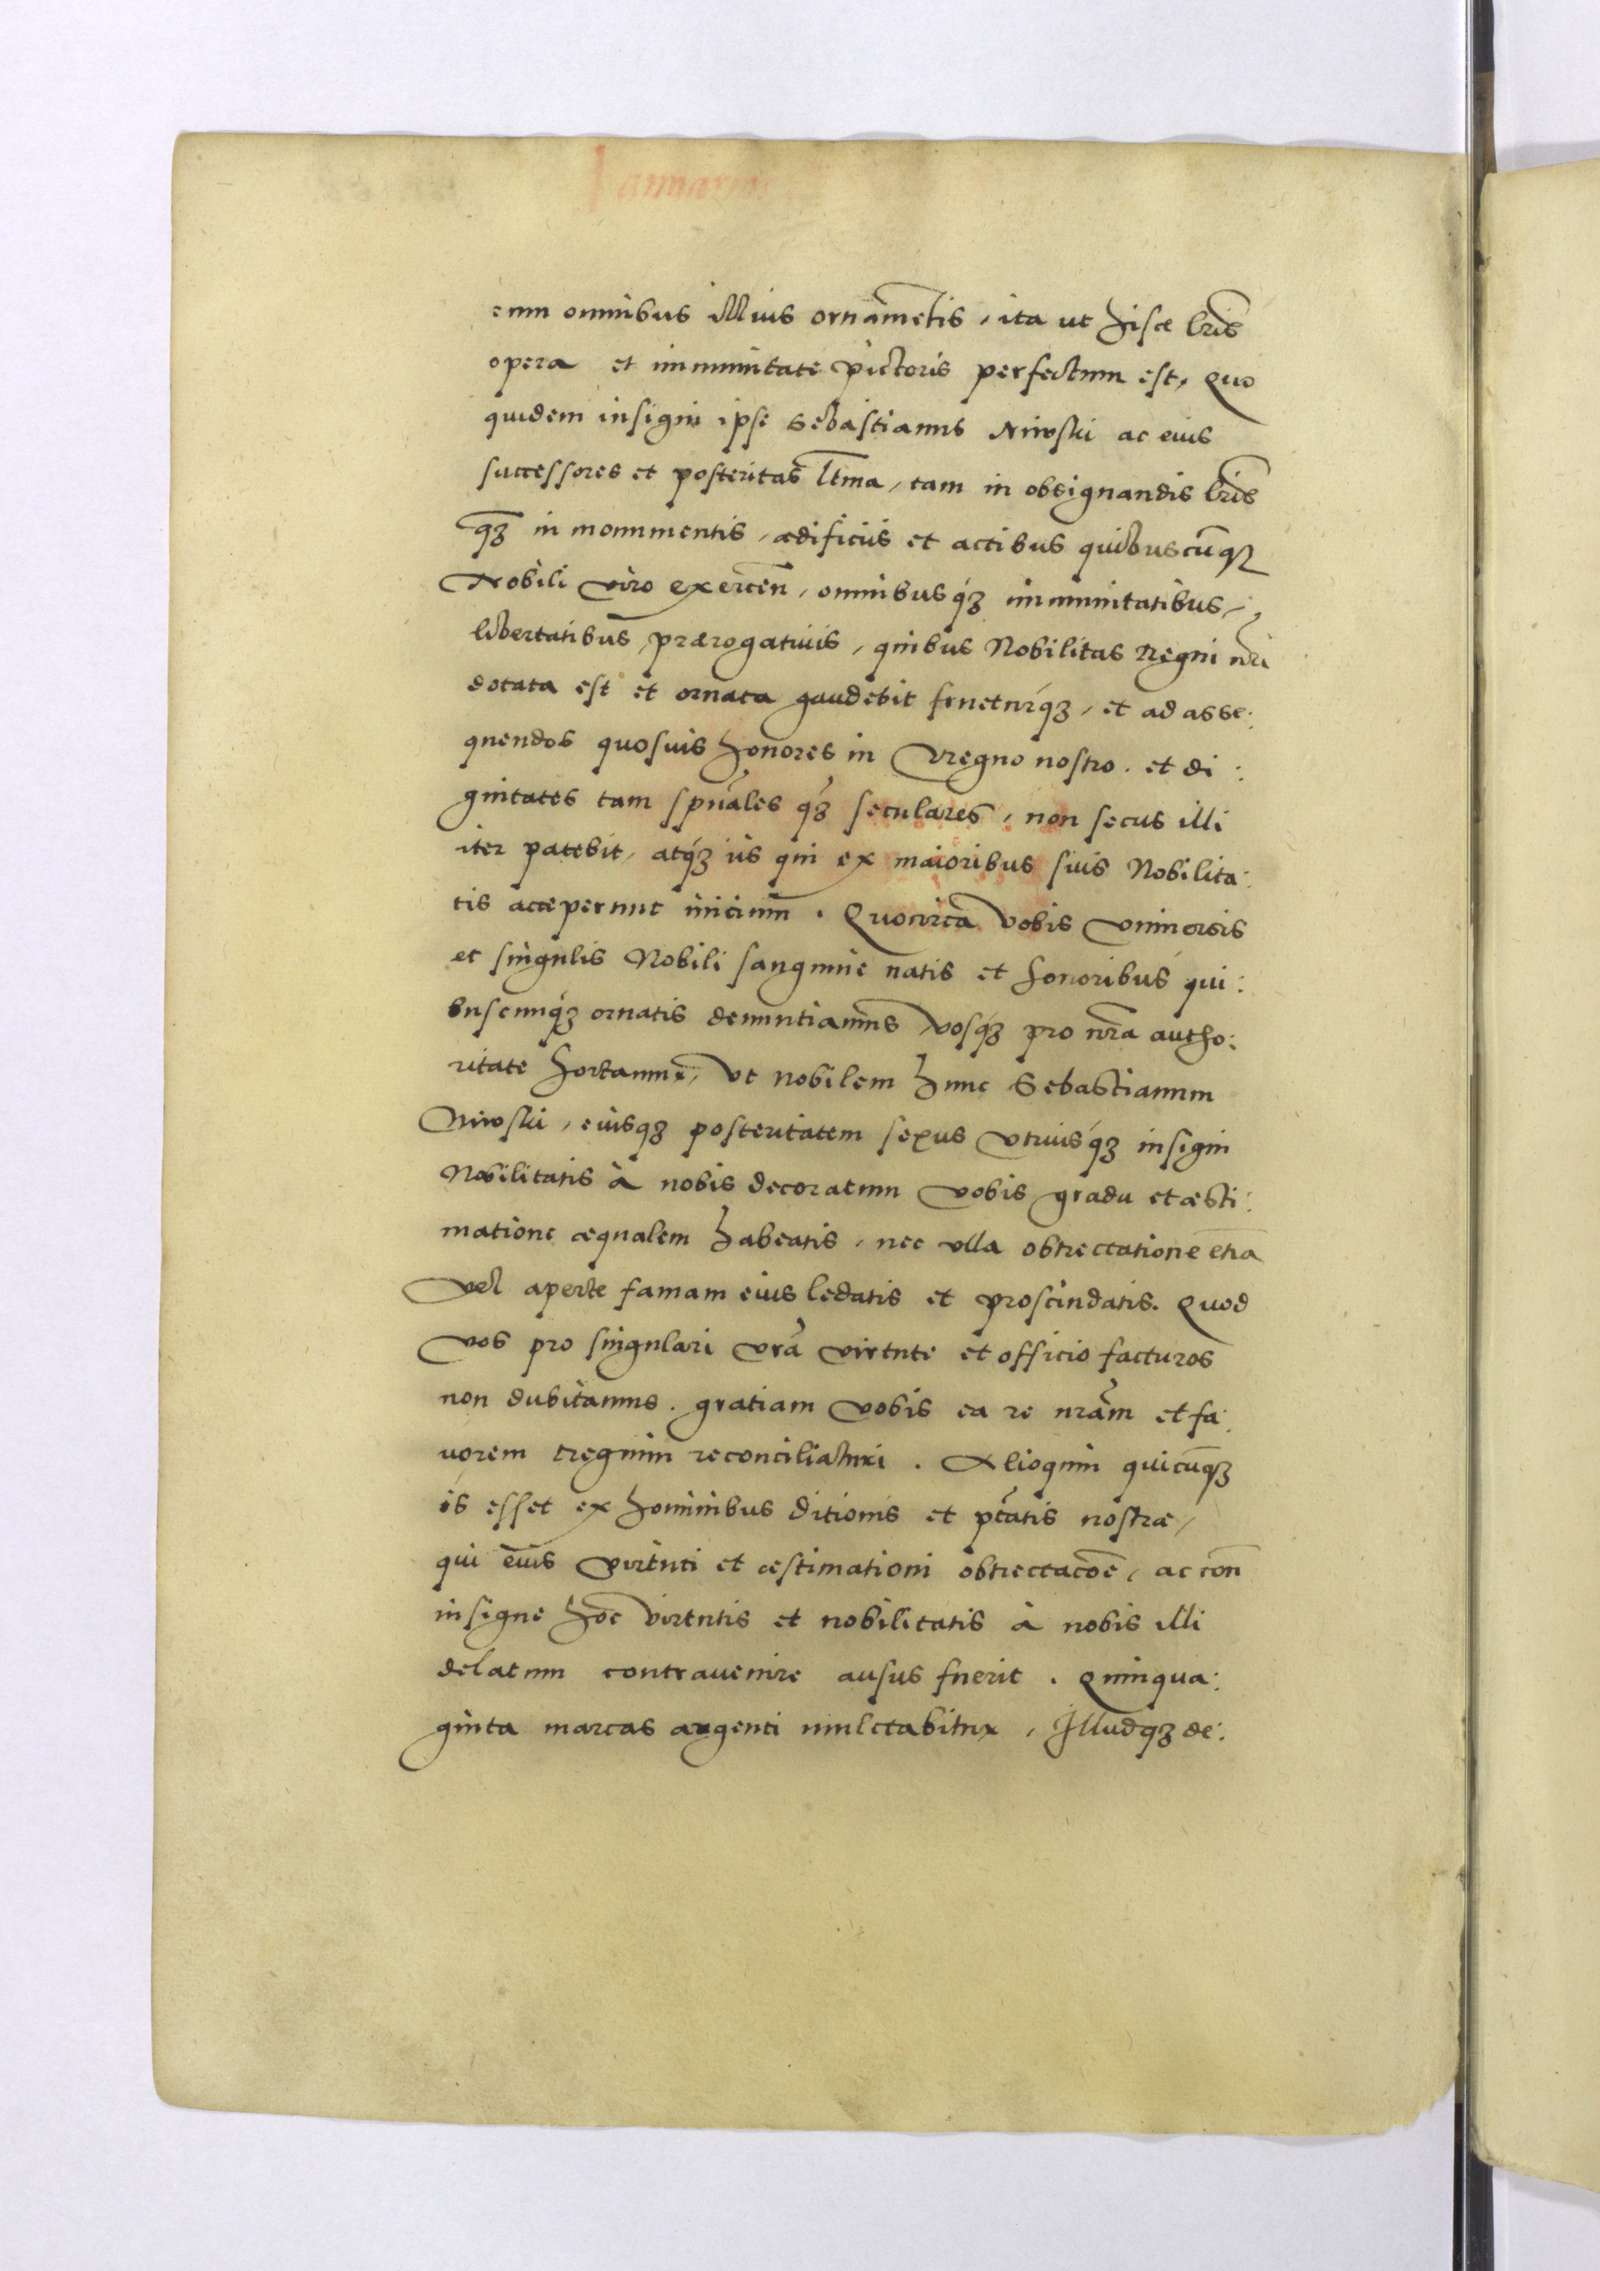 Januarius
cum omnibus illius ornametis, ita ut hisce lris
opera et immunitate pictoris perfectum est, Quo
quidem insigni ipse Sebastianus ac eius
successores et posteritas ltma, tam in obsignandis lris
qz in monumentis, ædificiis et actibus quibuscuqz
Nobili viro exercen, omnibusqz immunitatibus,
libertatibus, prærogatiuis, quibus Nobilitas Regni nri
dotata est et ornata gaudebit frueturqz, et ad asse:
quendos quosuis honores in Regno nostro. et di:
gnitates tam spuales qz seculares, non secus illi
iter patebit, atqz iis qui ex maioribus suis Nobilita:
tis acceperunt initium. Quocirca vobis vniuersis
et singulis Nobili sanguine natis et honoribus qui:
buscunqz ornatis denuntiamus vosqz pro nra autho:
ritate hortamur, vt nobilem hunc Sebastianum
eiusqz posteritatem sexus vtriusqz insigni
Nobilitatis à nobis decoratum vobis gradu et æsti:
matione æqualem habeatis, nec vlla obtrectatione etia
vel aperte famam eius ledatis et proscindatis. Quod
vos pro singulari vra virtute et officio facturos
non dubitamus. gratiam vobis ea re nram et fa:
uorem regium reconciliaturi. Alioquin quicuqz
is esset ex hominibus ditionis et ptatis nostræ,
qui eius virtuti et æstimationi obtrectacoe, ac con
insigne hoc virtutis et nobilitatis à nobis illi
delatum contrauenire ausus fuerit. Quinqua:
ginta marcas argenti mulctabitur, Illudqz de: